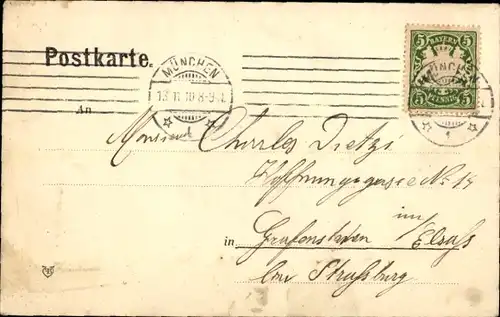 Postkarte.
MÜNCHEN
BAYERN
5 5
5 5
13.11.10 8-9
MÜNCHEN
1
An
Monsieur Charles Dietzi
Hoffnungsgasse No 14
im
in Grafenstaden Elsaß
bei Straßburg